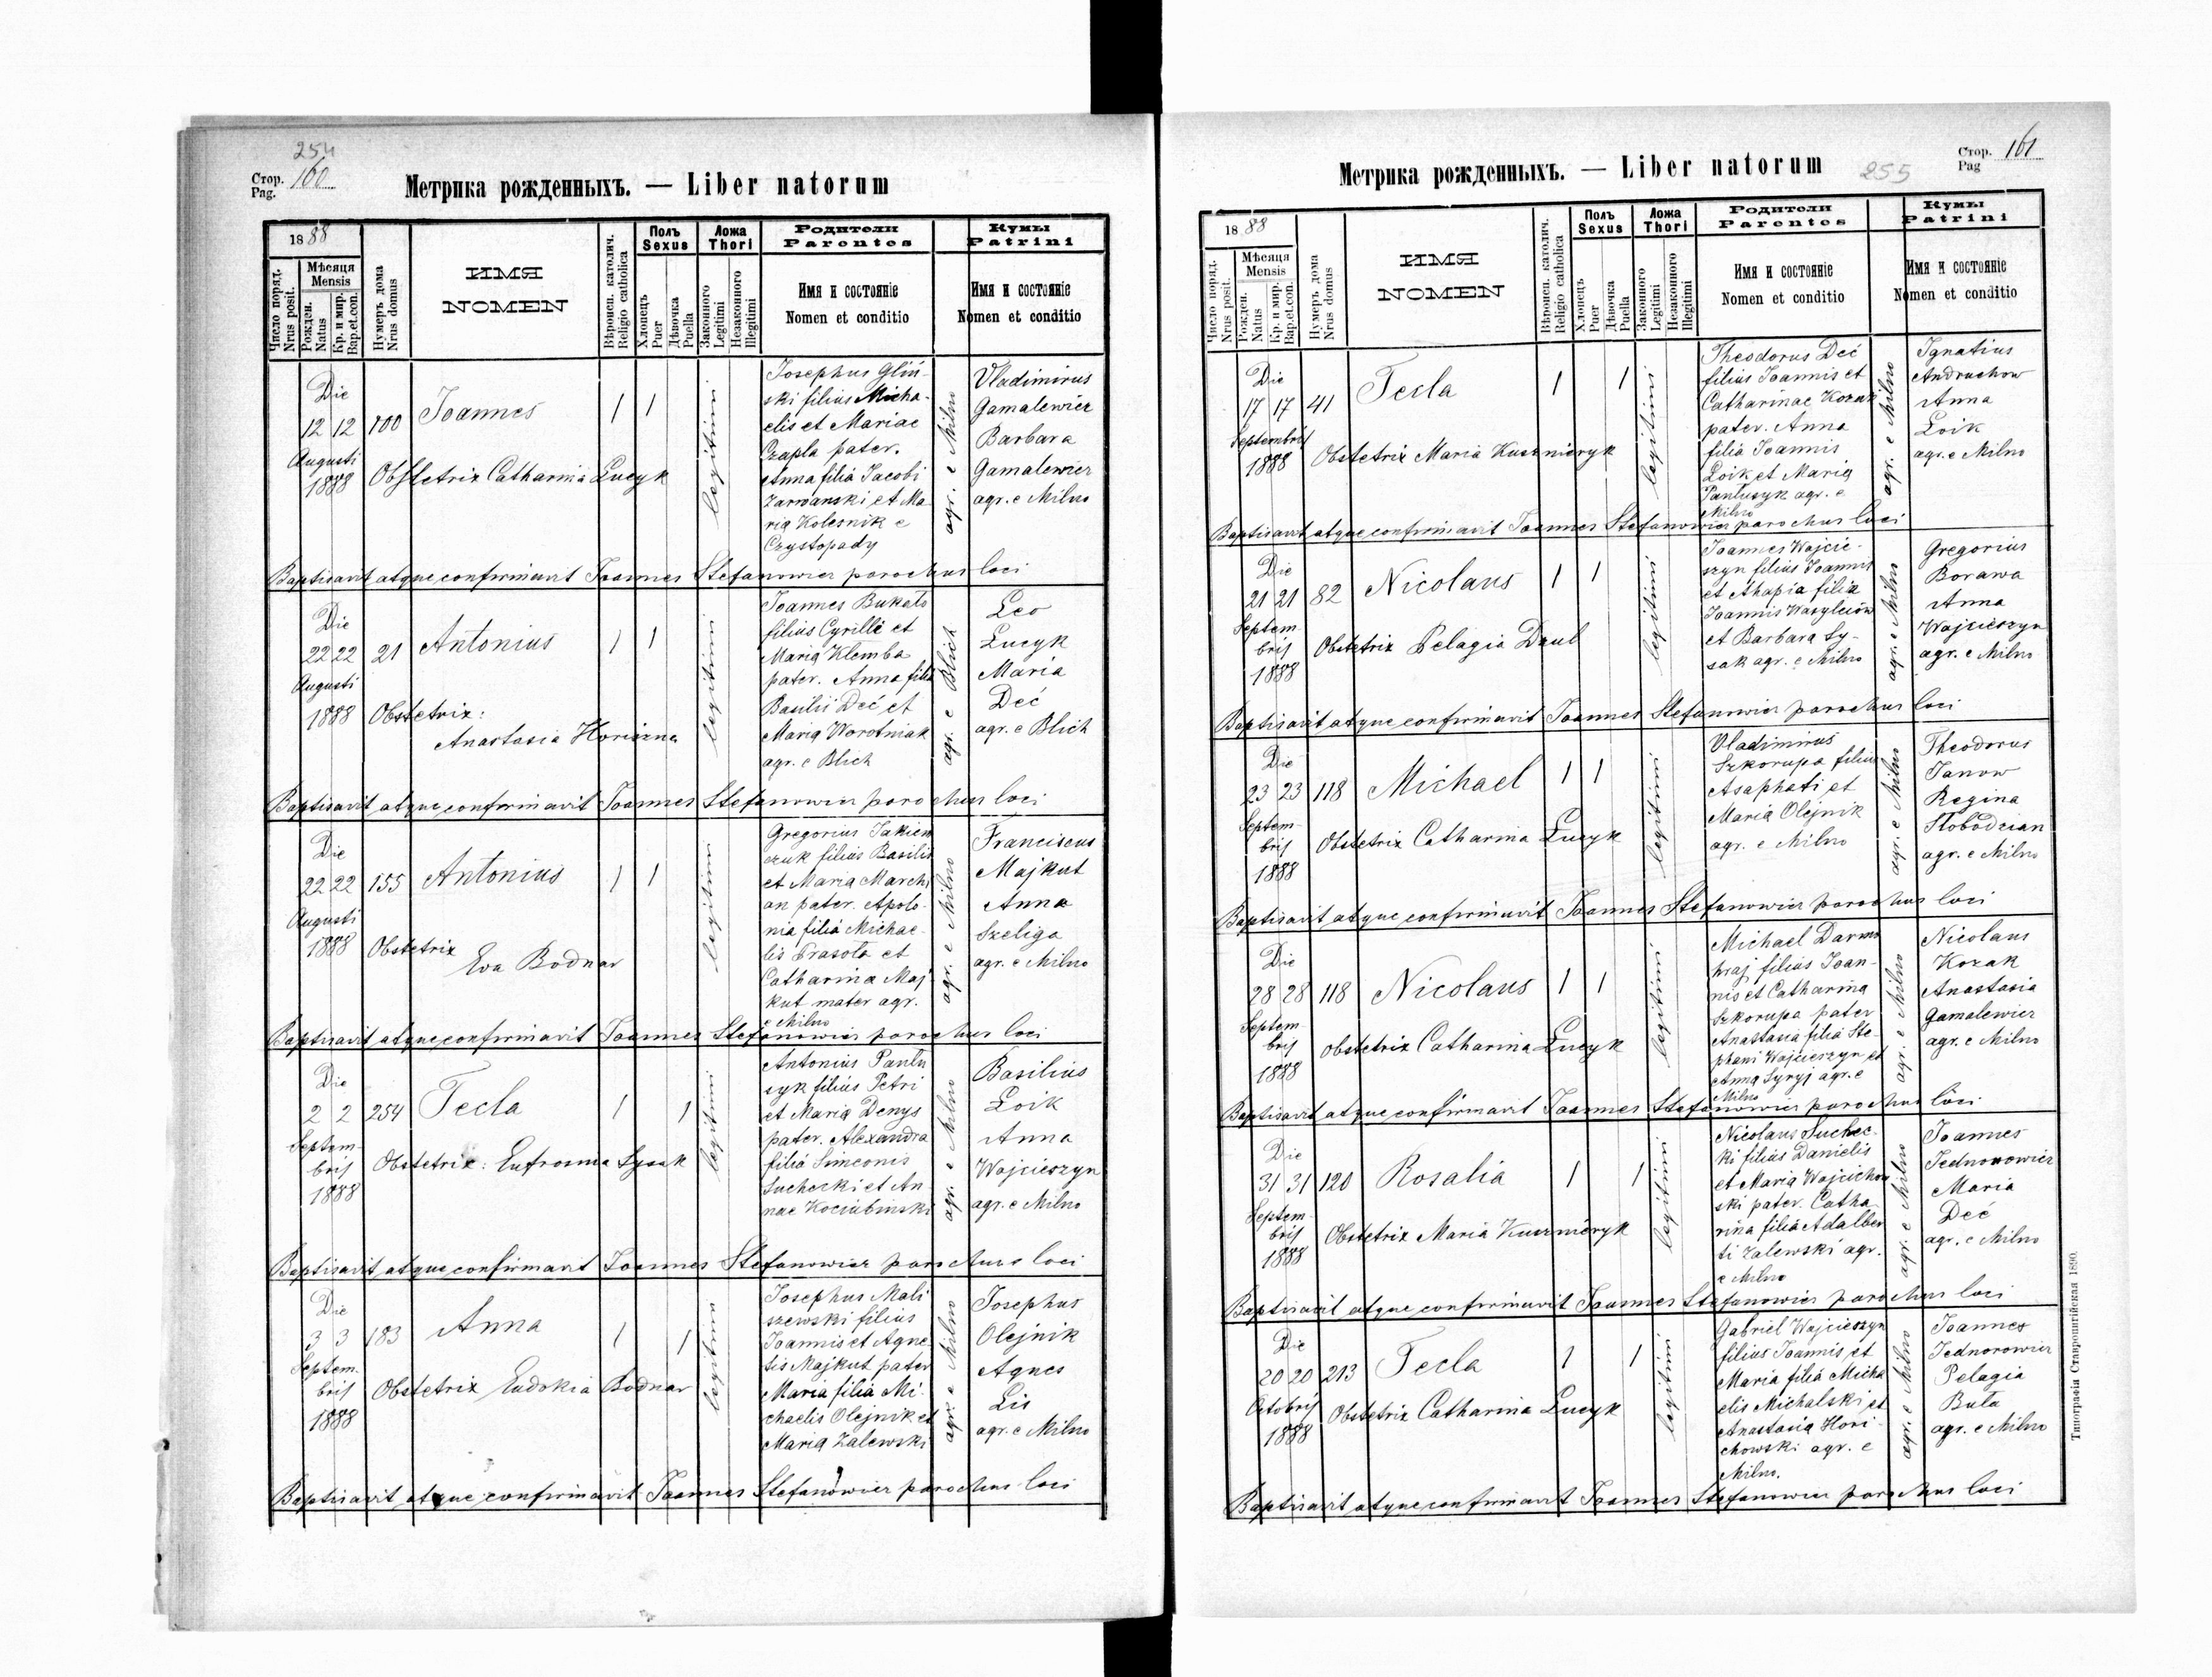 254
Стор. 160
Pag.
Метрика рожденныхъ. — Liber natorum
1888
Мѣсяца
Mensis
Число поряд.
Nrus posit.
Рожден.
Natus
Кр. и мир.
Bap.et.con.
Нумеръ дома
Nrus domus
ИМЯ
NOMEN
Вѣроисп. католич.
Religio catholica
Полъ
Sexus
Хлопецъ
Puer
Дѣвочка
Puella
Ложа
Thori
Законного
Legitimi
Незаконного
Illegitimi
Родители
Parentes
Имя и состояніе
Nomen et conditio
Кумы
Patrini
Имя и состояніе
Nomen et conditio
Die
12 12 100 Joannes 1 1
Augusti
1888 Obstetrix Catharina Łucyk
legitimi
Josephus Gliń-
ski filius Micha-
elis et Mariae
Czapla pater.
Anna filia Jacobi
Zarwanski et Ma
ria Kolesnik e
Czystopady
agr. e Milno
Vladimirus
Gamalewicz
Barbara
Gamalewicz
agr. e Milno
Baptisavit atque confirmavit Joannes Stefanowicz parochus loci
Die
22 22 21 Antonius 1 1
Augusti
1888 Obstetrix:
Anastasia Horiszna
legitimi
Joannes Bukato
filius Cyrilli et
Maria Klemba
pater. Anna filia
Basilii Deć et
Maria Worotniak
agr. e Blich
agr. e Blich
Leo
Łucyk
Maria
Deć
agr. e Blich
Baptisavit atque confirmavit Joannes Stefanowicz parochus loci
Die
22 22 155 Antonius 1 1
Augusti
1888 Obstetrix
Eva Bodnar
legitimi
Gregorius Jakien
czuk filius Basilii
et Maria March
an pater. Apolo-
nia filia Michae-
lis Krasota et
Catharina Maj
kut mater agr.
e Milno
agr. e Milno
Franciscus
Majkut
Anna
Szeliga
agr. e Milno
Baptisavit atque confirmavit Joannes Stefanowicz parochus loci
Die
2 2 254 Tecla 1 1
Septem-
bris
1888
Obstetrix: Eufrosina Łysak
legitimi
Antonius Pantu
syk filius Petri
et Maria Denys
pater. Alexandra
filia Simeonis
Suchecki et An
nae Kociubinski
agr. e Milno
Basilius
Łoik
Anna
Wojcieszyn
agr. e Milno
Baptisavit atque confirmavit Joannes Stefanowicz parochus loci
Die
3 3 183 Anna 1 1
Septem.
bris
1888
Obstetrix Eudokia Bodnar
legitimi
Josephus Mali
szewski filius
Joannis et Agne
tis Majkut pater
Maria filia Mi-
chaelis Olejnik et
Maria Zalewski
agr. e Milno
Josephus
Olejnik
Agnes
Lis
agr. e Milno
Baptisavit atque confirmavit Joannes Stefanowicz parochus loci
Метрика рожденныхъ. — Liber natorum
255
Стор. 161
Pag
1888
Мѣсяца
Mensis
Число поряд.
Nrus posit.
Рожден.
Natus
Кр. и мир.
Bap.et.con.
Нумеръ дома
Nrus domus
ИМЯ
NOMEN
Вѣроисп. католич.
Religio catholica
Полъ
Sexus
Хлопецъ
Puer
Дѣвочка
Puella
Ложа
Thori
Законного
Legitimi
Незаконного
Illegitimi
Родители
Parentes
Имя и состояніе
Nomen et conditio
Кумы
Patrini
Имя и состояніе
Nomen et conditio
Die
17 17 41 Tecla 1 1
Septembris
1888 Obstetrix Maria Kuszniryk
legitimi
Theodorus Deć
filius Joannis et
Catharinae Kozak
pater. Anna
filia Joannis
Łoik et Maria
Pantusyk agr. e
Milno
agr. e Milno
Ignatius
Andruchow
Anna
Łoik
agr. e Milno
Baptisavit atque confirmavit Joannes Stefanowicz parochus loci
Die
21 21 82 Nicolaus 1 1
Septem
bris
1888
Obstetrix Pelagia Daul
legitimi
Joannes Wojcie-
szyn filius Joannis
et Ahapia filia
Joannis Wasylciów
et Barbara Ły-
sak agr. e Milno
agr. e Milno
Gregorius
Borawa
Anna
Wojcieszyn
agr. e Milno
Baptisavit atque confirmavit Joannes Stefanowicz parochus loci
Die
23 23 118 Michael 1 1
Septem-
bris
1888
Obstetrix Catharina Łucyk
legitimi
Vladimirus
Szkorupa filius
Asaphati et
Maria Olejnik
agr. e Milno
agr. e Milno
Theodorus
Janow
Regina
Słobodzian
agr. e Milno
Baptisavit atque confirmavit Joannes Stefanowicz parochus loci
Die
28 28 118 Nicolaus 1 1
Septem-
bris
1888
Obstetrix Catharina Łucyk
legitimi
Michael Darmo
hraj filius Joan-
nis et Catharina
Szkorupa pater
Anastasia filia Ste-
phani Wojcieszyn et
Anna Syryj agr. e
Milno
agr. e Milno
Nicolaus
Kozak
Anastasia
Gamalewicz
agr. e Milno
Baptisavit atque confirmavit Joannes Stefanowicz parochus loci
Die
31 31 120 Rosalia 1 1
Septem-
bris
1888
Obstetrix Maria Kuszniryk
legitimi
Nicolaus Suchec-
ki filius Danielis
et Maria Wojcichow
ski pater. Catha-
rina filia Adalber
ti Zalewski agr.
e Milno
agr. e Milno
Joannes
Jednorowicz
Maria
Deć
agr. e Milno
Baptisavit atque confirmavit Joannes Stefanowicz parochus loci
Die
20 20 213 Tecla 1 1
Octobris
1888
Obstetrix Catharina Łucyk
legitimi
Gabriel Wojcieszyn
filius Joannis et
Maria filia Micha
elis Michalski et
Anastasia Hori-
chowski agr. e
Milno.
agr. e Milno
Joannes
Jednorowicz
Pelagia
Buta
agr. e Milno
Baptisavit atque confirmavit Joannes Stefanowicz parochus loci
Типографія Ставропигійская 1890.